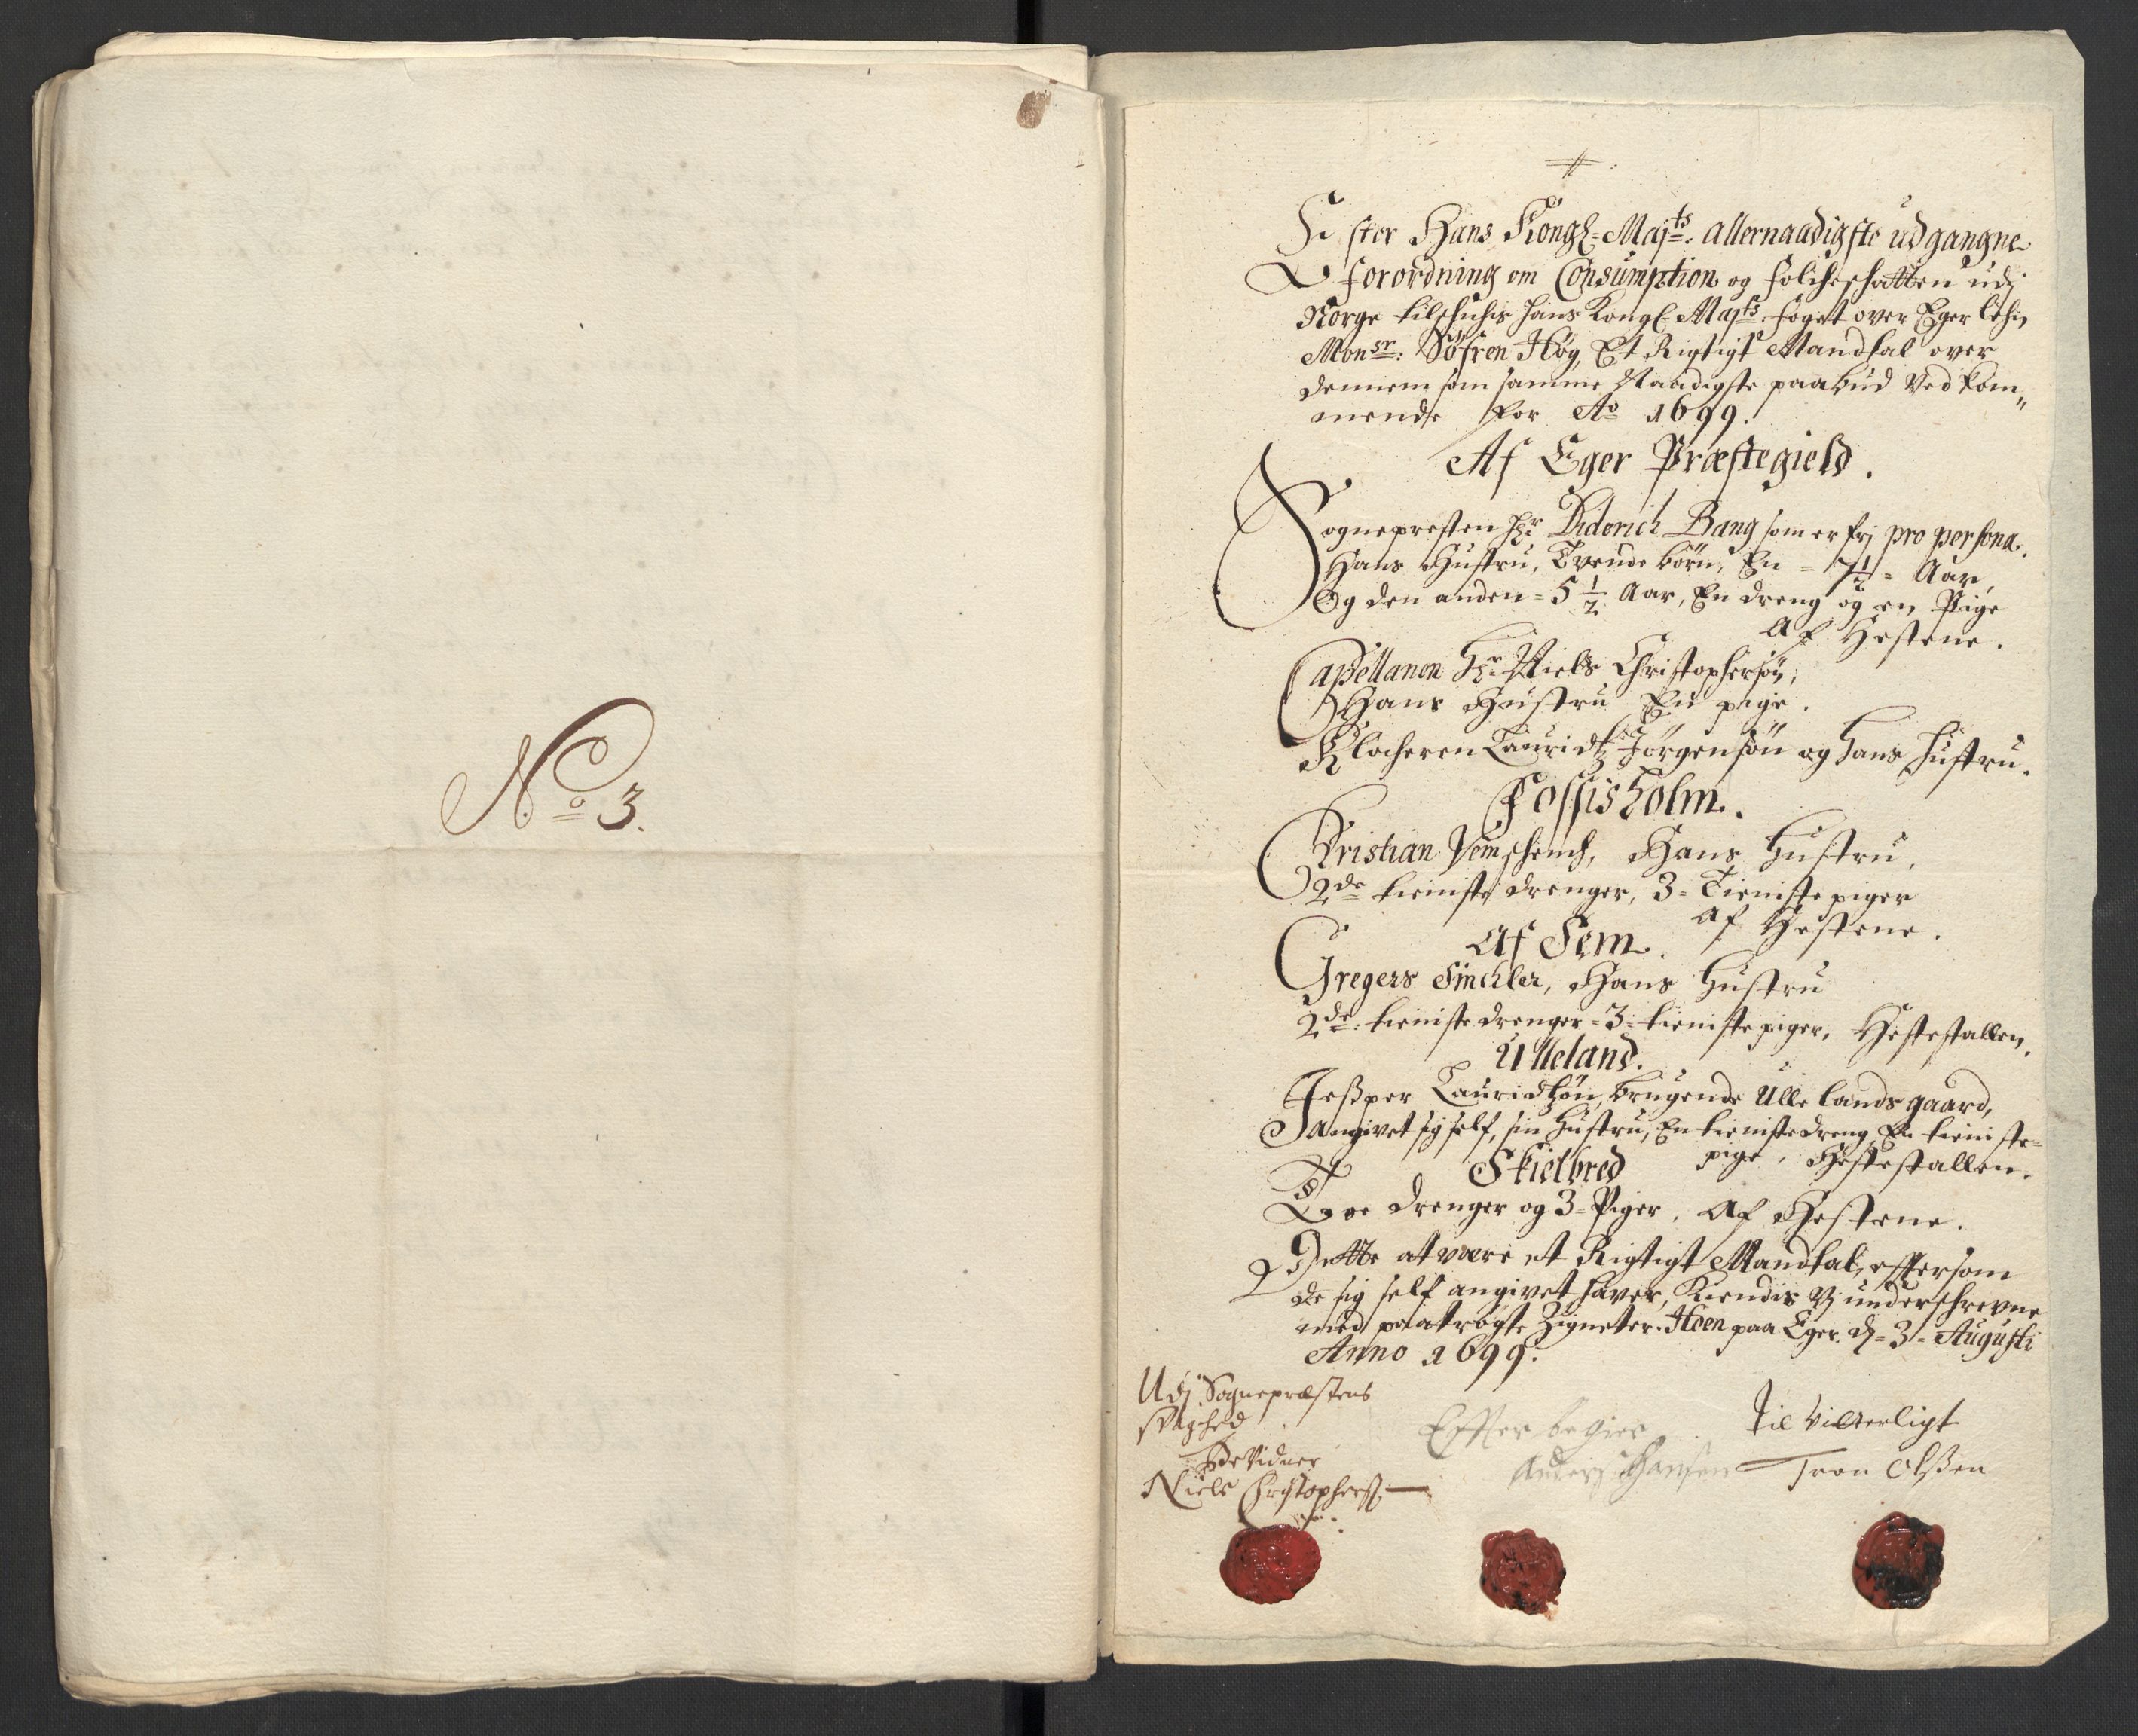 No 3.
Efter Hans Kongl: Majts: allernaadigste udgangne
forordning om Consumption og folcheschatten udj
Norge tilschichis hans Kongl Majts: foget over Eger Lehn
Monsr: Söfren Høg, Et Rigtigt Mandtal over
dennem som samme Naadigste paabud Vedkom„
mende for Ao 1699.
Af Eger Præstegield.
Sognepresten Hr Diderich Bang som er frj pro persona.
Hans Hustru, Tvende börn, En = 7½ = Aar,
Og den anden = 5 ½ Aar, En dreng og en Pige
Af Hestene.
Capellanen Hr. Niels Christophersön,
Hans Hustru En pige.
Klocheren Lauridtz Jörgensön og hans hustru.
Fossisholm.
Christian Vemschench, Hans Hustru,
2de tieniste drenger, 3 = Tieniste piger
af Hestene.
Af Sem.
Gregers Sinchler, Hans Hustru
2de: tieniste drenger = 3 = tieniste piger, Hestestallen.
Ulleland.
Jesper Lauridtzön, brugende Ullelands gaard,
angivet sig self, sin Hustru, En tieniste dreng, En tieniste=
pige, Hestestallen.
Skielbred
Toe drenger og 3 = Piger, Af Hestene.
Dette at være et Rigtigt Mandtal, eftersom
de sig self angivet haver, Kiendis Vj underschrevne
med paatrögte Zigneter. Hoen paa Eger. d = 3 = Augusti
Anno 1699.
Udj Sognepræstens
svaghed
Bevidner
Niels Christophersø
Effter begier
Anders Hansen
Til Vitterligt
Tron Olsen